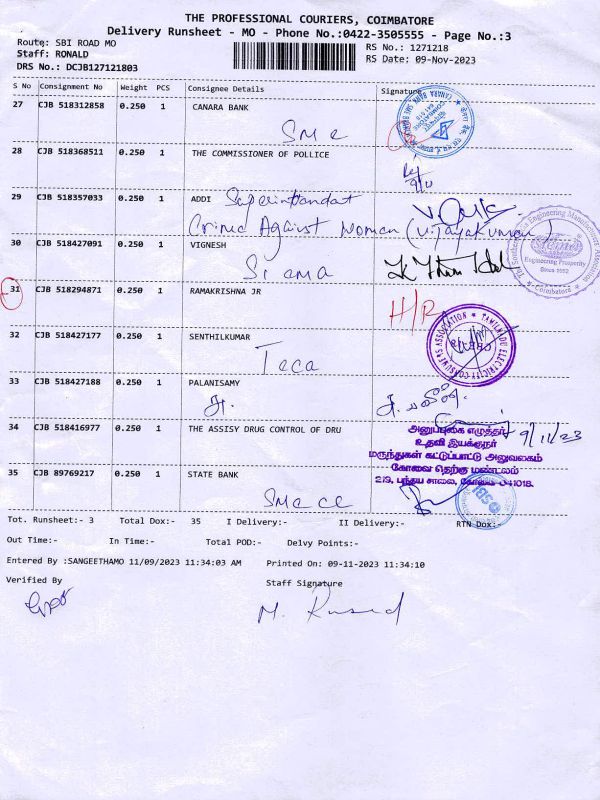 THE PROFESSIONAL COURIERS, COIMBATORE
Delivery Runsheet - MO - Phone No.:0422-3505555 - Page No.:3
Route: SBI ROAD MO
RS No.: 1271218
Staff: RONALD
RS Date: 09-Nov-2023
DRS No.: DCJB127121803
S No Consignment No Weight PCS Consignee Details Signature
27 CJB 518312858 0.250 1 CANARA BANK
SME
28 CJB 518368511 0.250 1 THE COMMISSIONER OF POLLICE
9/11
29 CJB 518357033 0.250 1 ADDI Superintendat
Crime Against Women (Vijayakumari)
30 CJB 518427091 0.250 1 VIGNESH
Siema
Engineering Prosperity
Since 1952
Coimbatore
31 CJB 518294871 0.250 1 RAMAKRISHNA JR H/R
32 CJB 518427177 0.250 1 SENTHILKUMAR
Teca
TAMILNADU ELECTRICITY CONSUMERS ASSOCIATION
33 CJB 518427188 0.250 1 PALANISAMY
34 CJB 518416977 0.250 1 THE ASSISY DRUG CONTROL OF DRU
அனுப்புகை எழுத்தர் 9/11/23
உதவி இயக்குநர்
மருந்துகள் கட்டுப்பாட்டு அலுவலகம்
கோவை தெற்கு மண்டலம்
219, பந்தய சாலை, கோவை-641018.
35 CJB 89769217 0.250 1 STATE BANK
SBI
Tot. Runsheet:- 3 Total Dox:- 35 I Delivery:- II Delivery:- RTN Dox:-
Out Time:- In Time:- Total POD:- Delvy Points:-
Entered By :SANGEETHAMO 11/09/2023 11:34:03 AM Printed On: 09-11-2023 11:34:10
Verified By Staff Signature